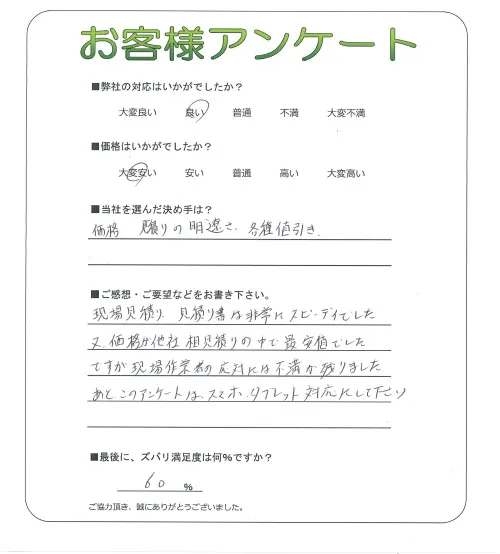 お客様アンケート
■弊社の対応はいかがでしたか？
大変良い 良い 普通 不満 大変不満
■価格はいかがでしたか？
大変安い 安い 普通 高い 大変高い
■当社を選んだ決め手は？
価格 見積りの明遼さ、各種値引き、
■ご感想・ご要望などをお書き下さい。
現場見積り、見積り書は非常にスピーディでした
又、価格が他社相見積りの中で最安値でした
ですが現場作業者の応対には不満が残りました
あと、このアンケートは、スマホ、タブレット対応にして下さい
■最後に、ズバリ満足度は何％ですか？
60 ％
ご協力頂き、誠にありがとうございました。